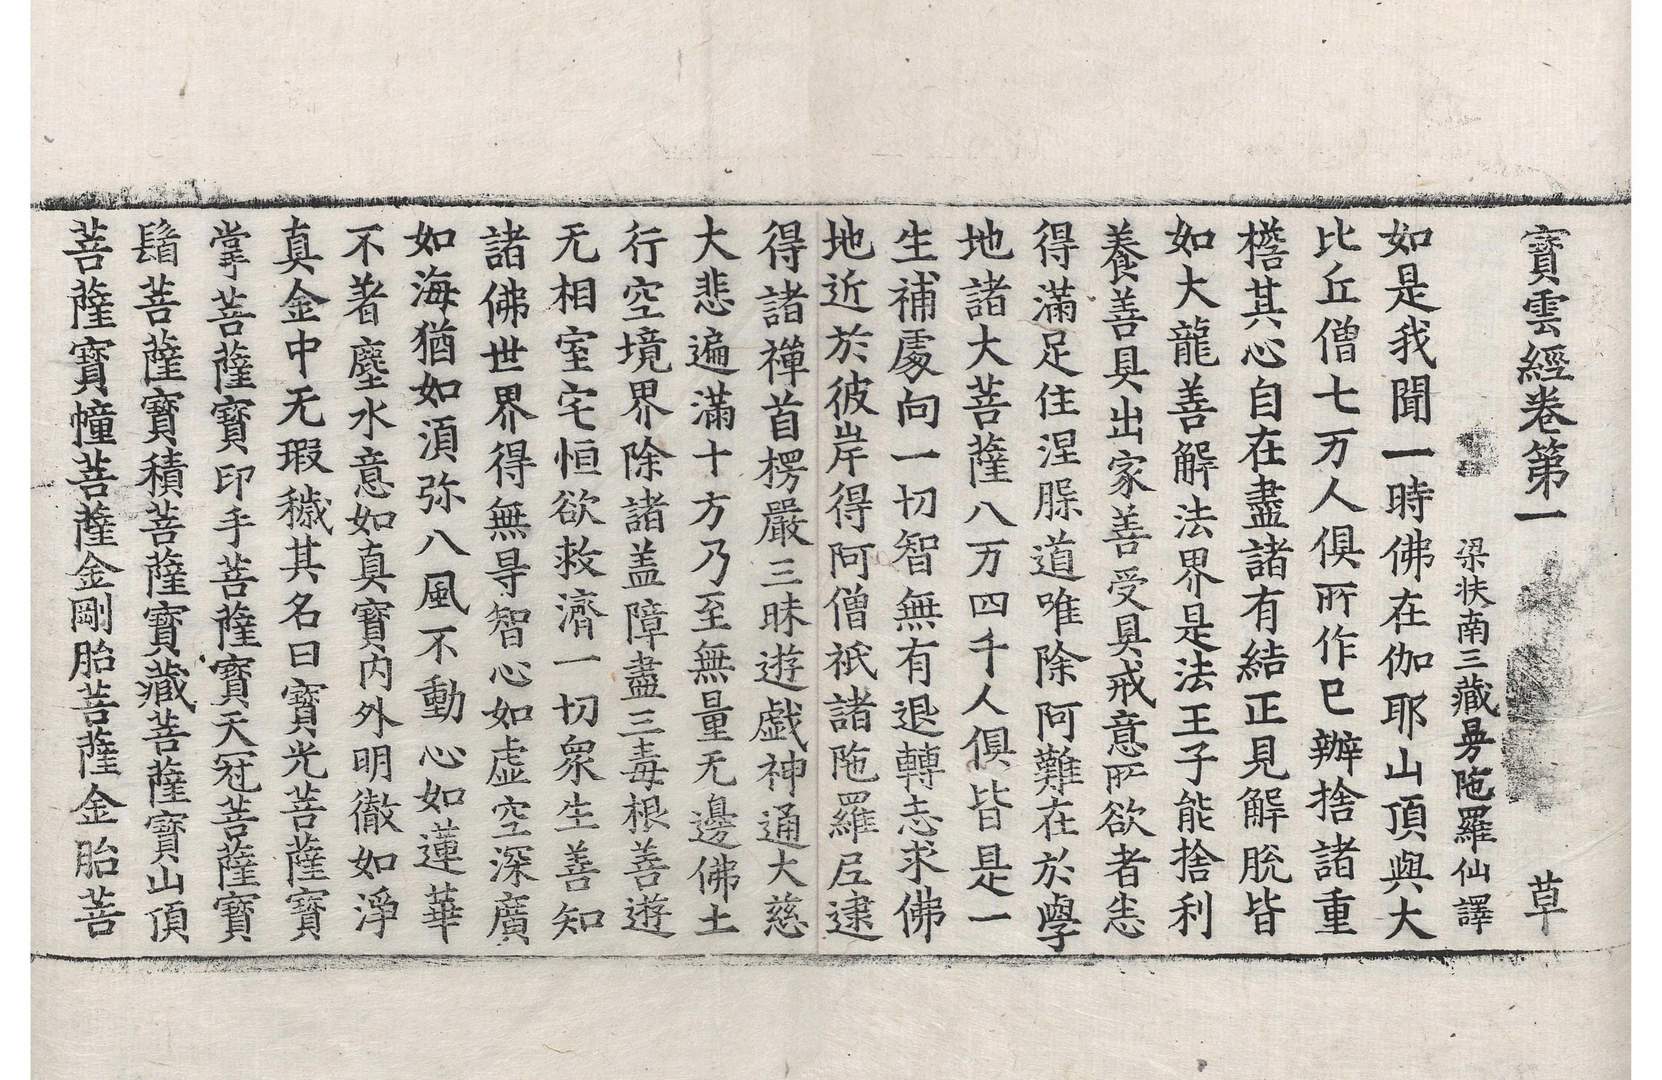 寶雲經卷第一 草
梁扶南三藏曼陁羅仙譯
如是我聞一時佛在伽耶山頂與大
比丘僧七万人俱所作已辦捨諸重
檐其心自在盡諸有結正見解脫皆
如大龍善解法界是法王子能捨利
養善具出家善受具戒意所欲者悉
得滿足住涅脲道唯除阿難在於學
地諸大菩薩八万四千人俱皆是一
生補處向一切智無有退轉志求佛
地近於彼岸得阿僧祇諸陁羅尼逮
得諸禪首楞嚴三昧遊戲神通大慈
大悲遍滿十方乃至無量无邊佛土
行空境界除諸盖障盡三毒根善遊
无相室宅恒欲救濟一切衆生善知
諸佛世界得無㝵智心如虛空深廣
如海猶如湏弥八風不動心如蓮華
不著塵水意如真寶內外明徹如淨
真金中无瑕穢其名曰寶光菩薩寶
掌菩薩寶印手菩薩寶天冠菩薩寶
髻菩薩寶積菩薩寶藏菩薩寶山頂
菩薩寶幢菩薩金剛胎菩薩金胎菩